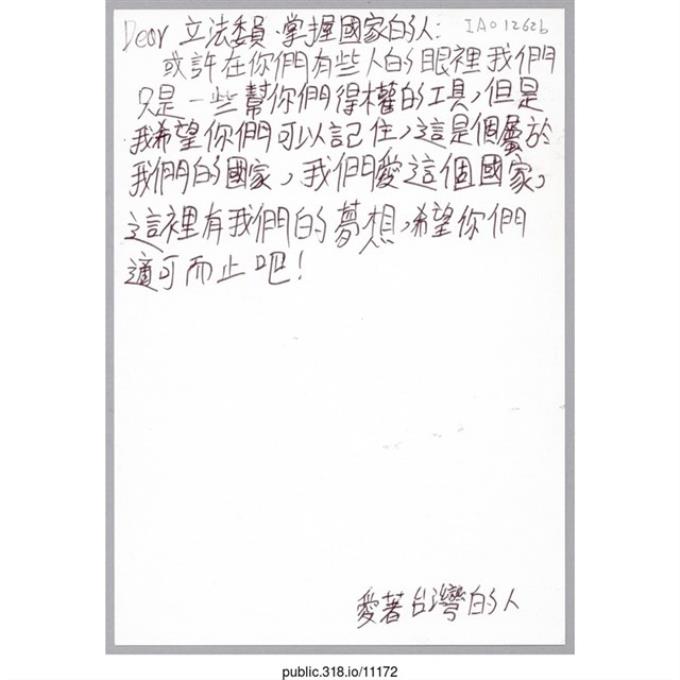 Dear 立法委員、掌握國家的人: IA012626
或許在你們有些人的眼裡我們
只是一些幫你們得權的工具,但是
我希望你們可以記住,這是個屬於
我們的國家,我們愛這個國家,
這裡有我們的夢想,希望你們
適可而止吧!
愛著台灣的人
public.318.io/11172